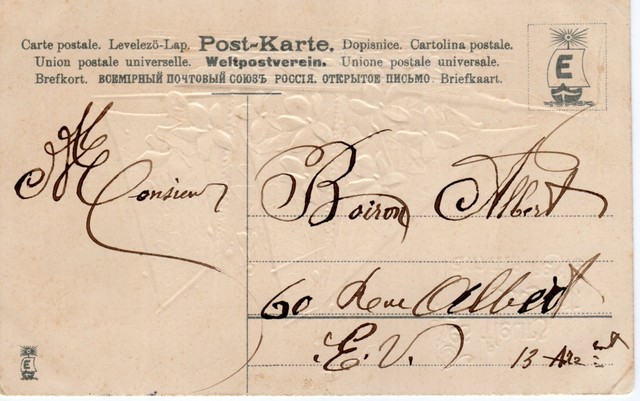 Carte postale. Levelezö-Lap. Post-Karte. Dopisnice. Cartolina postale.
Union postale universelle. Weltpostverein. Unione postale universale.
Brefkort. ВСЕМІРНЫЙ ПОЧТОВЫЙ СОЮЗЪ РОССІЯ. ОТКРЫТОЕ ПИСЬМО. Briefkaart.
E
Monsieur Boiron Albert
60 Rue Albert
E.V. 13 Arr.ent
E